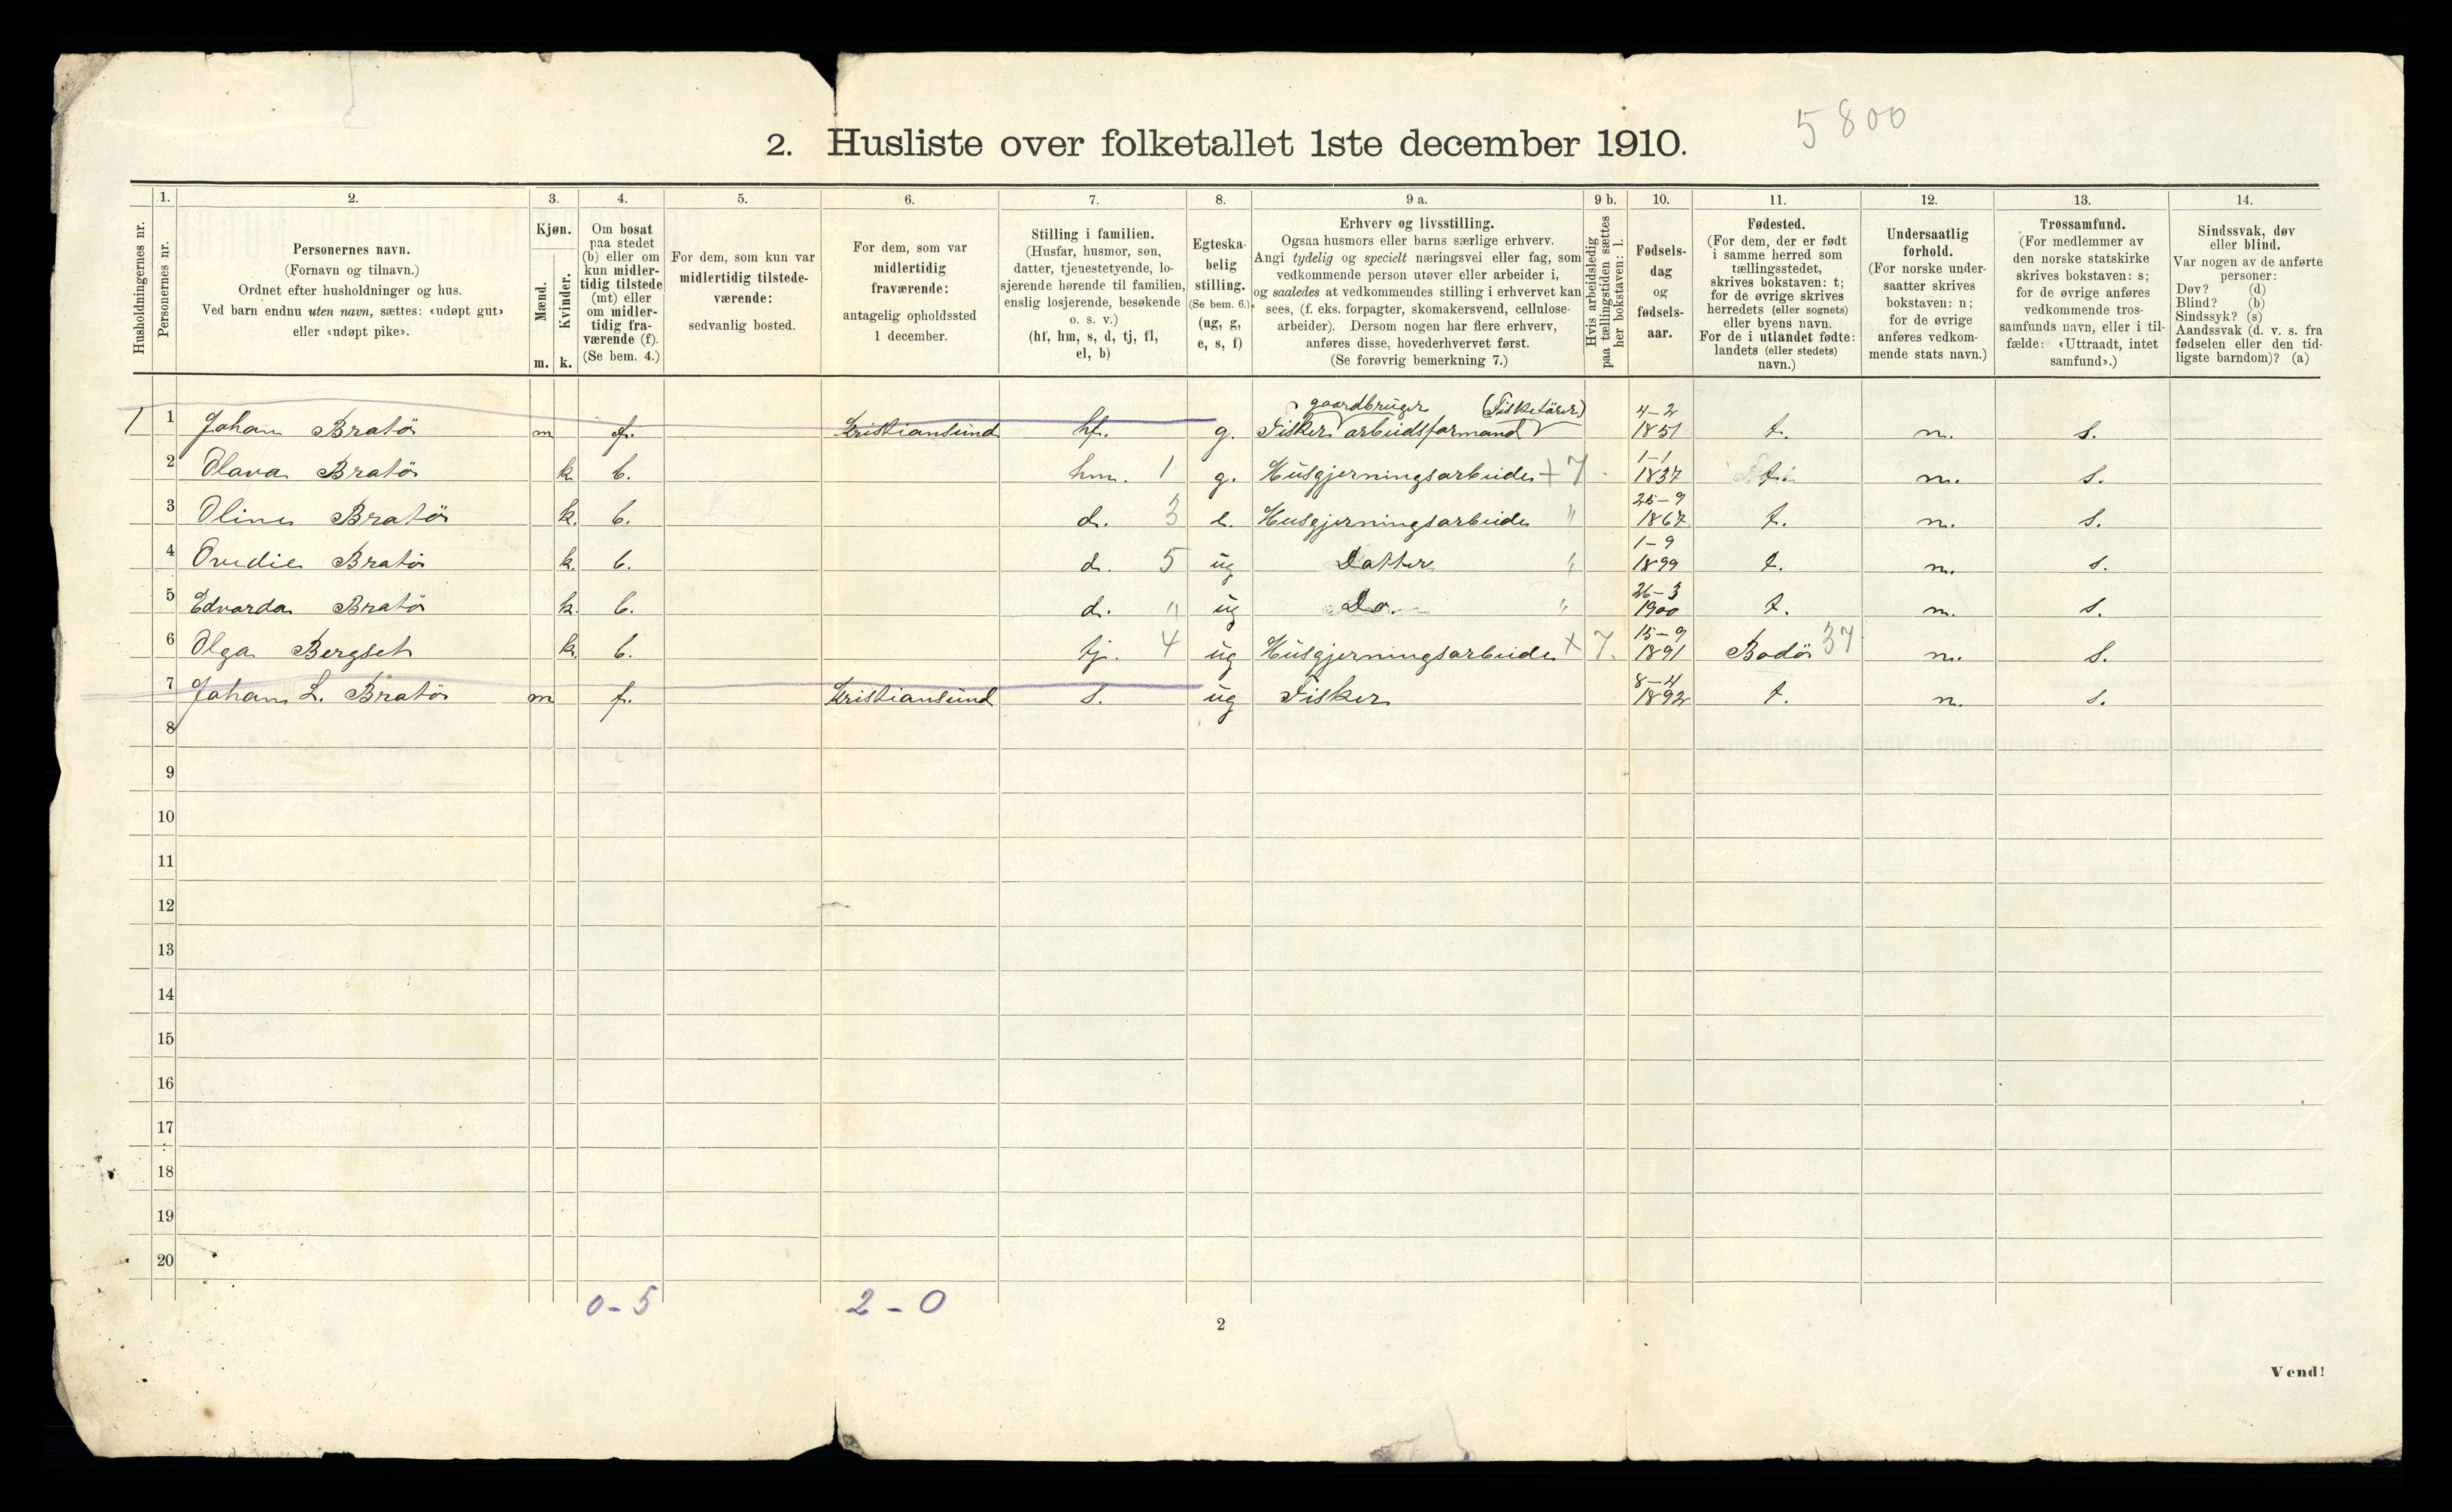 5800
2. Husliste over folketallet 1ste december 1910.
1. 2. 3. 4. 5. 6. 7. 8. 9 a. 9 b. 10. 11. 12. 13. 14.
Husholdningernes nr.
Personernes nr.
Personernes navn.
(Fornavn og tilnavn.)
Ordnet efter husholdninger og hus.
Ved barn endnu uten navn, sættes: «udøpt gut»
eller «udøpt pike».
Kjøn.
Mænd.
Kvinder.
m. k.
Om bosat
paa stedet
(b) eller om
kun midler-
tidig tilstede
(mt) eller
om midler-
tidig fra-
værende (f).
(Se bem. 4.)
For dem, som kun var
midlertidig tilstede-
værende:
sedvanlig bosted.
For dem, som var
midlertidig
fraværende:
antagelig opholdssted
1 december.
Stilling i familien.
(Husfar, husmor, søn,
datter, tjenestetyende, lo-
sjerende hørende til familien,
enslig losjerende, besøkende
o. s. v.)
(hf, hm, s, d, tj, fl,
el, b)
Egteska-
belig
stilling.
(Se bem. 6.)
(ug, g,
e, s, f)
Erhverv og livsstilling.
Ogsaa husmors eller barns særlige erhverv.
Angi tydelig og specielt næringsvei eller fag, som
vedkommende person utøver eller arbeider i,
og saaledes at vedkommendes stilling i erhvervet kan
sees, (f. eks. forpagter, skomakersvend, cellulose-
arbeider). Dersom nogen har flere erhverv,
anføres disse, hovederhvervet først.
(Se forøvrig bemerkning 7.)
Hvis arbeidsledig
paa tællingstiden sættes
her bokstaven: l.
Fødsels-
dag
og
fødsels-
aar.
Fødested.
(For dem, der er født
i samme herred som
tællingsstedet,
skrives bokstaven: t;
for de øvrige skrives
herredets (eller sognets)
eller byens navn.
For de i utlandet fødte:
landets (eller stedets)
navn.)
Undersaatlig
forhold.
(For norske under-
saatter skrives
bokstaven: n;
for de øvrige
anføres vedkom-
mende stats navn.)
Trossamfund.
(For medlemmer av
den norske statskirke
skrives bokstaven: s;
for de øvrige anføres
vedkommende tros-
samfunds navn, eller i til-
fælde: «Uttraadt, intet
samfund».)
Sindssvak, døv
eller blind.
Var nogen av de anførte
personer:
Døv? (d)
Blind? (b)
Sindssyk? (s)
Aandssvak (d. v. s. fra
fødselen eller den tid-
ligste barndom)? (a)
gaardbruger 4-2
1 1 Johan Bratö m f. Kristiansund hf. g. Fisker arbeidsformand 1851 t. n. s.
1-1
2 Olava Bratö k b. hm. 1 g. Husgjerningsarbeide + 7 1837 t. n. s.
25-9
3 Oline Bratö k. b. d. 3 e. Husgjerningsarbeide " 1867 t. n. s.
1-9
4 Ovedie Bratö k. b. d. 5 ug Datter " 1899 t. n. s.
26-3
5 Edvarda Bratö k. b. d. " ug Do. " 1900 t. n. s.
15-9
6 Olga Bergset k. b. tj. 4 ug Husgjerningsarbeide x 7. 1891 Bodö 37 n. s.
8-4
7 Johan L. Bratö m f. Kristiansund s. ug Fisker 1892 t. n. s.
8
9
10
11
12
13
14
15
16
17
18
19
20
0-5 2-0
2
Vend!